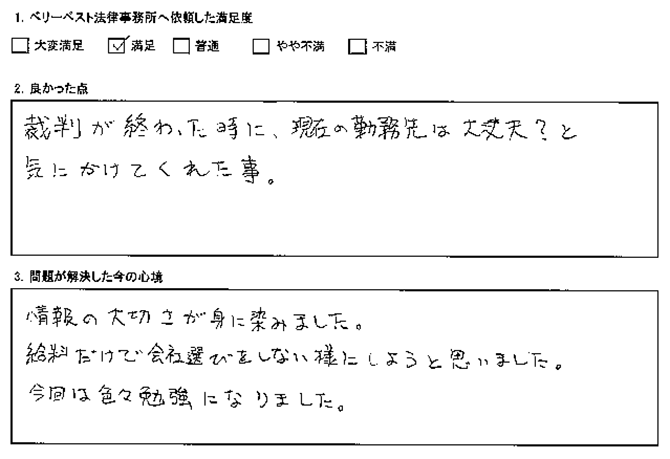 1. ベリーベスト法律事務所へ依頼した満足度
□ 大変満足 ☑ 満足 □ 普通 □ やや不満 □ 不満
2. 良かった点
裁判が終わった時に、現在の勤務先は大丈夫?と
気にかけてくれた事。
3. 問題が解決した今の心境
情報の大切さが身に染みました。
給料だけで会社選びをしない様にしようと思いました。
今回は色々勉強になりました。